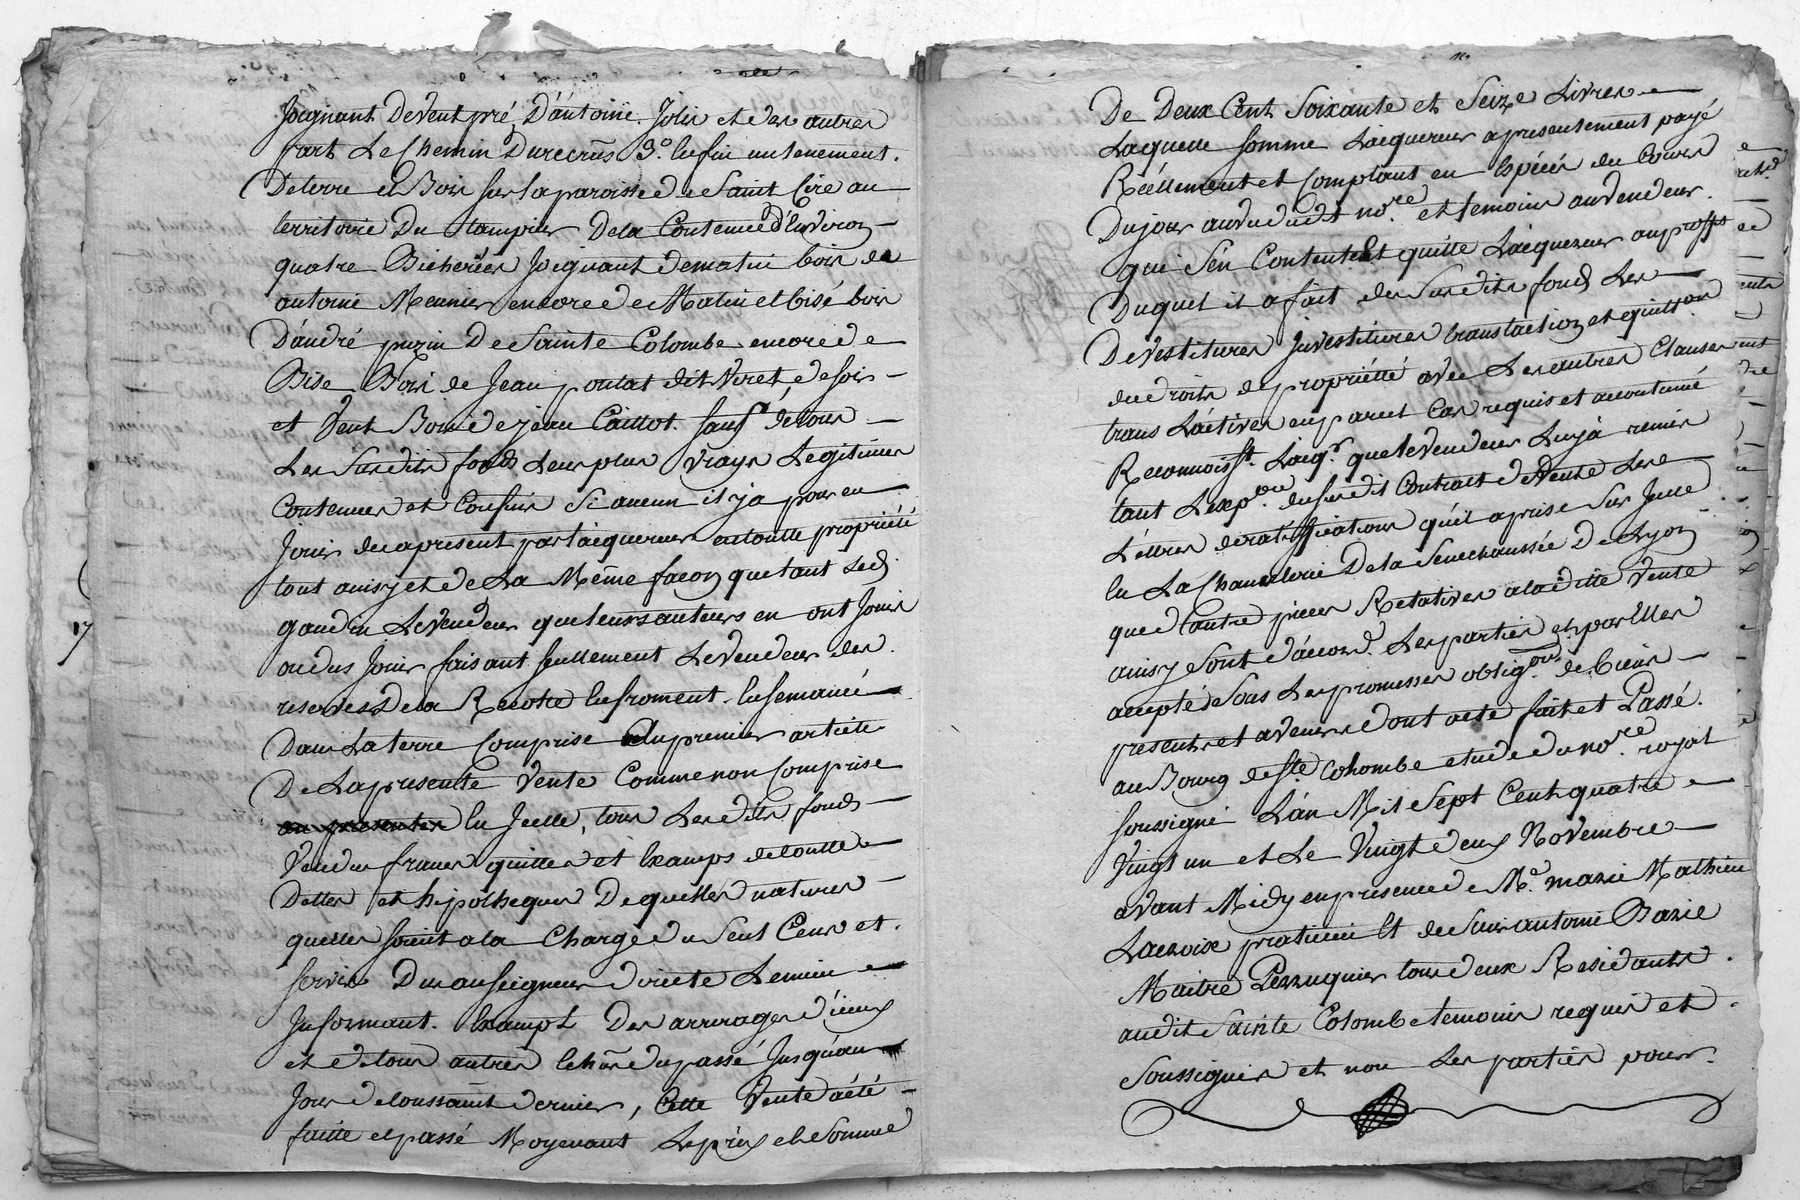 Joignant de Vent pré, D'antoine Jolis et des autres
part Le Chemin 3.° Enfin un tenement
De terre et Bois sur la paroisse de Saint Cire au
territoire Du tampier De la Contenue d'Environ
quatre Bicherées Joignant de matin bois de
antoine Meunier encore de Matin et bise bois
D'andré puzin De Sainte Colombe encore de
Bise Bois de Jean poulat dit Veret, de soir
et Vent Bois de jean Caillot. Sauf de tous
Les Susdits fonds Leurs plus Vrays Legitimes
Contenues et Confins Si aucun il y a pour en
Jouir des apresent par L'acquereur en toutte propriété
tout ainsy et de La Même façon que tant Led.
gaudin Le Vendeur que leurs auteurs en ont Jouis
ou dus Jouir faisant seullement Le Vendeur des
reserves De la Recolte en froment ensemancé
Dans La terre Comprise Au premier article
De La presente Vente Comme non Comprise
En Icelle, tous Lesdits fonds
Vendus francs quittes et Exampts de toutte
Dettes et hipotheques De quelles natures
quelles soient a la Charge du Seul Cens et
servis Du au seigneur directe Le mieux
Informant. Exampt Des arrerages d'iceux
et de tous autres du passé Jusqu'au
Jour de toussaint dernier, Cette Vente a été
faitte et passé Moyenant Le prix et Somme
De Deux Cent Soixante et Seize Livres
Laquelle somme L'acquereur a presentement payé
Réellement et Comptant en Espéces du Cours
Du jour au vu dudt nore. et temoins au vendeur
qui S'en Contente Et quitte L'acquereur au proffit
Duquel il a fait des Susdits fonds Les
Devestitures Investitures translaction et
des droits de propriété avec Les autres Clauses
translatives en pareil Cas requis et acoutumé
Reconnoisst. L'acqr. que le vendeur Luy a remis
tant L'expon. du susdit Contract de Vente Les
Lettres de ratiffications qu'il a prise Sur Icelle
En La Chancelerie De la Senechaussée De Lyon
que d'autre pieces Relatives a la ditte Vente
ainsy Sont d'acord Les parties et par Elles
accepté Sous Les promesses obligon. de biens
presents et avenirs dont acte fait et Passé
au Bourg de Ste Colombe etude du nore. royal
soussigné L'an Mil Sept Cent quatre
Vingt un et Le Vingt deux Novembre
avant Midy en presence de Me. marie Mathieu
Lacroix praticien Et de Sieur antoine Bazie
Maitre Perruquier tous deux Residants
audit Sainte Colombe temoins requis et
Soussignés et non Les parties pour
17